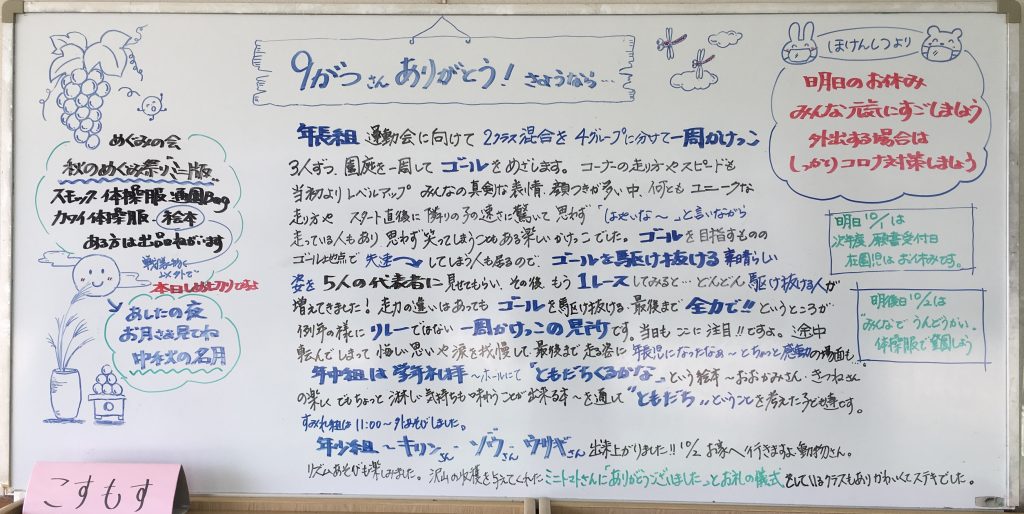 9がつさん ありがとう! さようなら…
ほけんしつより
明日のお休み
みんな元気にすごしましょう
外出する場合は
しっかりコロナ対策しましょう
明日10/1は
次年度願書受付日
在園児はお休みです。
明後日10/2は
"みんなでうんどうかい"
体操服で登園しよう
めぐみの会
秋のめぐみ祭りミニ版
スモック 体操服 通園Bag
カワイ体操服 絵本
ある方は出品ねがいます
本日しめ切りですよ
あしたの夜
お月さま見てね
中秋の名月
年長組 運動会に向けて 2クラス混合を4グループに分けて一周かけっこ
3人ずつ、園庭を一周して ゴールをめざします。コーナーの走り方やスピードも
当初よりレベルアップ みんなの真剣な表情、顔つきが多い中、何ともユニークな
走り方や スタート直後に隣りの子の速さに驚いて思わず「はやいな〜」と言いながら
走っている人もあり 思わず笑ってしまうこともある楽しいかけっこでした。ゴールを目指すものの
ゴール地点で失速してしまう人も居るので、ゴールを駆け抜ける素晴らしい
姿を5人の代表者に見せてもらい、その後もう1レースしてみると…どんどん駆け抜ける人が
増えてきました! 走力の違いはあっても ゴールを駆け抜ける・最後まで全力で!!というところが
例年の様にリレーではない 一周かけっこの見所です。当日もここに注目!!ですよ。途中
転んでしまって悔しい思いや涙を我慢して、最後まで走る姿に年長児になったなぁ〜とちょっと感動の場面も。
年中組は学年礼拝〜ホールにて"ともだちくるかな"という絵本〜おおかみさん・きつねさん
の楽しくでもちょっと淋しい気持ちも味わうことが出来る本〜を通して"ともだち"ということを考えた子ども達です。
すみれ組は11:00〜外あそびしました。
年少組〜キリンさん ゾウさん ウサギさん 出来上がりました!! 10/2お家へ行きますよ、動物さん。
リズムあそびも楽しみました。沢山の収穫を与えてくれたミニトマトさんに「ありがとうございました」とお礼の儀式をしているクラスもあり かわいくてステキでした。
こすもす